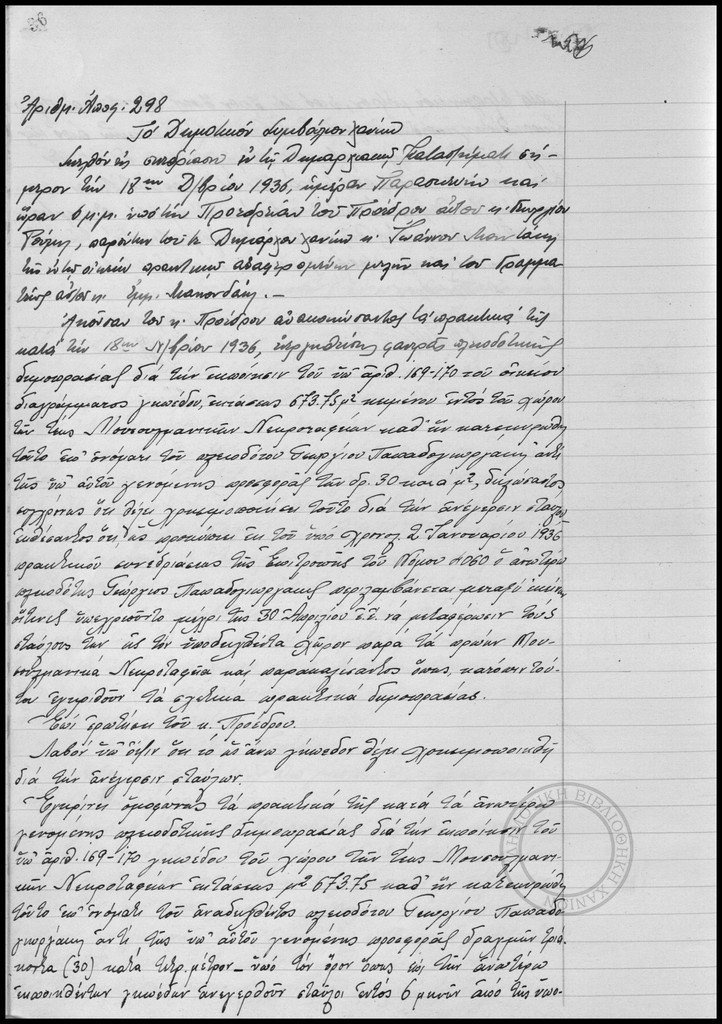 36
Ἀριθμ. Ἀποφ. 298
Τὸ Δημοτικὸν Συμβούλιον Χανίων
Συνελθὸν εἰς συνεδρίασιν ἐν τῇ Δημαρχιακῷ Καταστήματι σή-
μερον τὴν 18ην Δ/βρίου 1936, ἡμέραν Παρασκευὴν καὶ
ὥραν 6 μ.μ. ὑπὸ τὴν Προεδρείαν τοῦ Προέδρου αὐτοῦ κ. Γεωργίου
παρόντων τοῦ κ. Δημάρχου Χανίων κ. Ἰωάννου
τῶν ἐν τοῖς οἰκείοις πρακτικοῖς ἀναφερομένων μελῶν καὶ τοῦ Γραμμα
τέως αὐτοῦ κ. Ἐμμ. Μακρυδάκη. —
Ἀκοῦσαν τοῦ κ. Προέδρου ἀνακοινώσαντος τὰ πρακτικὰ τῆς
κατὰ τὴν 18ην Ν/βρίου 1936, ἐνεργηθείσης φανερᾶς πλειοδοτικῆς
δημοπρασίας διὰ τὴν ἐκποίησιν τοῦ ὑπ' ἀριθ. 169-170 τοῦ οἰκείου
διαγράμματος γηπέδου, ἐκτάσεως 673.75 μ² κειμένου ἐντὸς τοῦ χώρου
τῶν τέως Μουσουλμανικῶν Νεκροταφείων καθ' ἣν κατεκυρώθη
τοῦτο ἐπ' ὀνόματι τοῦ πλειοδότου Γεωργίου Παπαδογιωργάκη ἀντὶ
τῆς ὑπ' αὐτοῦ γενομένης προσφορᾶς τῶν δρ. 30 κατὰ μ², δηλώσαντος
συγχρόνως ὅτι θέλει χρησιμοποιήσει τοῦτο διὰ τὴν ἀνέγερσιν σταύλου
ἐκθέσαντος ὅτι, ὡς προκύπτει ἐκ τοῦ ὑπὸ χρονολ. 2 Ἰανουαρίου 1936
πρακτικοῦ συνεδριάσεως τῆς Ἐπιτροπῆς τοῦ Νόμου 4060 ὁ ἀνωτέρω
πλειοδότης Γεώργιος Παπαδογιωργάκης περιλαμβάνεται μεταξὺ ἐκείνων
οἵτινες ὑπεχρεοῦντο μέχρι τῆς 30 Ἀπριλίου ἐ.ἔ. νὰ μεταφέρωσιν τοὺς
σταύλους των εἰς τὸν ὑποδειχθέντα χῶρον παρὰ τὰ πρώην Μου-
σουλμανικὰ Νεκροταφεῖα καὶ παρακαλέσαντος ὅπως, κατόπιν τού-
του ἐγκριθοῦν τὰ σχετικὰ πρακτικὰ δημοπρασίας.
Ἐπὶ ἐρωτήσει τοῦ κ. Προέδρου.
Λαβὸν ὑπ' ὄψιν ὅτι τὸ ὡς ἄνω γήπεδον θέλει χρησιμοποιηθῇ
διὰ τὴν ἀνέγερσιν σταύλων.
Ἐγκρίνει ὁμοφώνως τὰ πρακτικὰ τῆς κατὰ τὰ ἀνωτέρω
γενομένης πλειοδοτικῆς δημοπρασίας διὰ τὴν ἐκποίησιν τοῦ
ὑπ' ἀριθ. 169-170 γηπέδου τοῦ χώρου τῶν τέως Μουσουλμανι-
κῶν Νεκροταφείων ἐκτάσεως μ² 673.75 καθ' ἣν κατεκυρώθη
τοῦτο ἐπ' ὀνόματι τοῦ ἀναδειχθέντος πλειοδότου Γεωργίου Παπαδο
γιωργάκη ἀντὶ τῆς ὑπ' αὐτοῦ γενομένης προσφορᾶς δραχμῶν τριά
κοντα (30) κατὰ τετρ. μέτρον — ὑπὸ τὸν ὅρον ὅπως ἐπὶ τῶν ἀνωτέρω
ἐκποιηθέντων γηπέδων ἀνεγερθοῦν σταῦλοι ἐντὸς 6 μηνῶν ἀπὸ τῆς ὑπο-
ΔΗΜΟΤΙΚΗ ΒΙΒΛΙΟΘΗΚΗ ΧΑΝΙΩΝ